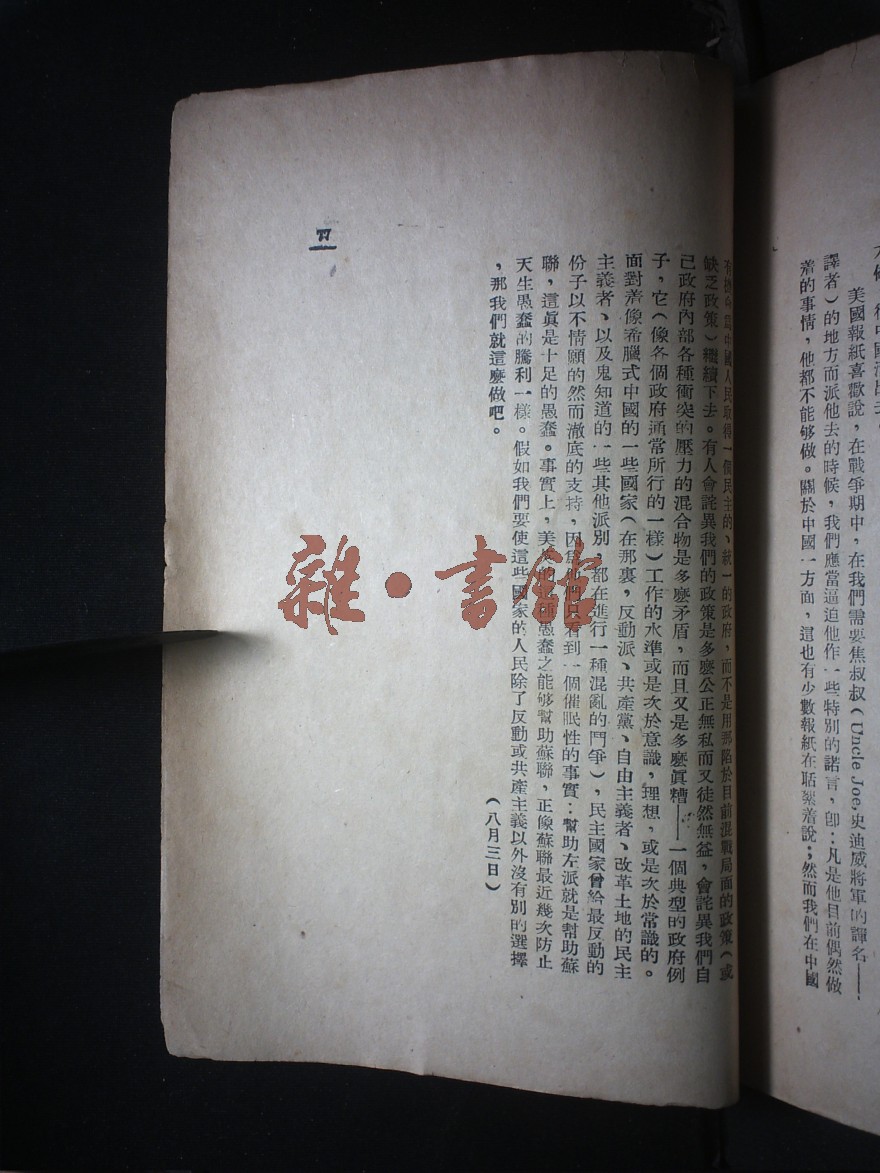 美國報紙喜歡說，在戰爭期中，在我們需要焦叔叔（Uncle Joe,史迪威將軍的諢名——
譯者）的地方而派他去的時候，我們應當逼迫他作一些特別的諾言，卽：凡是他目前偶然做
着的事情，他都不能够做。關於中國一方面，這也有少數報紙在聒絮着說；然而我們在中國
爲中國人民取得一個民主的、統一的政府，而不是用那陷於目前混戰局面的政策（或
缺乏政策）繼續下去。有人會詫異我們的政策是多麽公正無私而又徒然無益，會詫異我們自
已政府內部各種衝突的壓力的混合物是多麽矛盾，而且又是多麽眞糟——一個典型的政府例
子，它（像各個政府通常所行的一樣）工作的水準或是次於意識，理想，或是次於常識的。
面對着像希臘式中國的一些國家（在那裏，反動派、共產黨、自由主義者、改革土地的民主
主義者、以及鬼知道的一些其他派別，都在進行一種混亂的鬥爭），民主國家曾給最反動的
份子以不情願的然而澈底的支持，因爲他們只看到一個催眠性的事實：幫助左派就是幫助蘇
聯，這眞是十足的愚蠢。事實上，美英的這種愚蠢之能够幫助蘇聯，正像蘇聯最近幾次防止
天生愚蠢的勝利一樣。假如我們要使這些國家的人民除了反動或共產主義以外沒有別的選擇
，那我們就這麽做吧。
（八月三日）
77
雜·書館